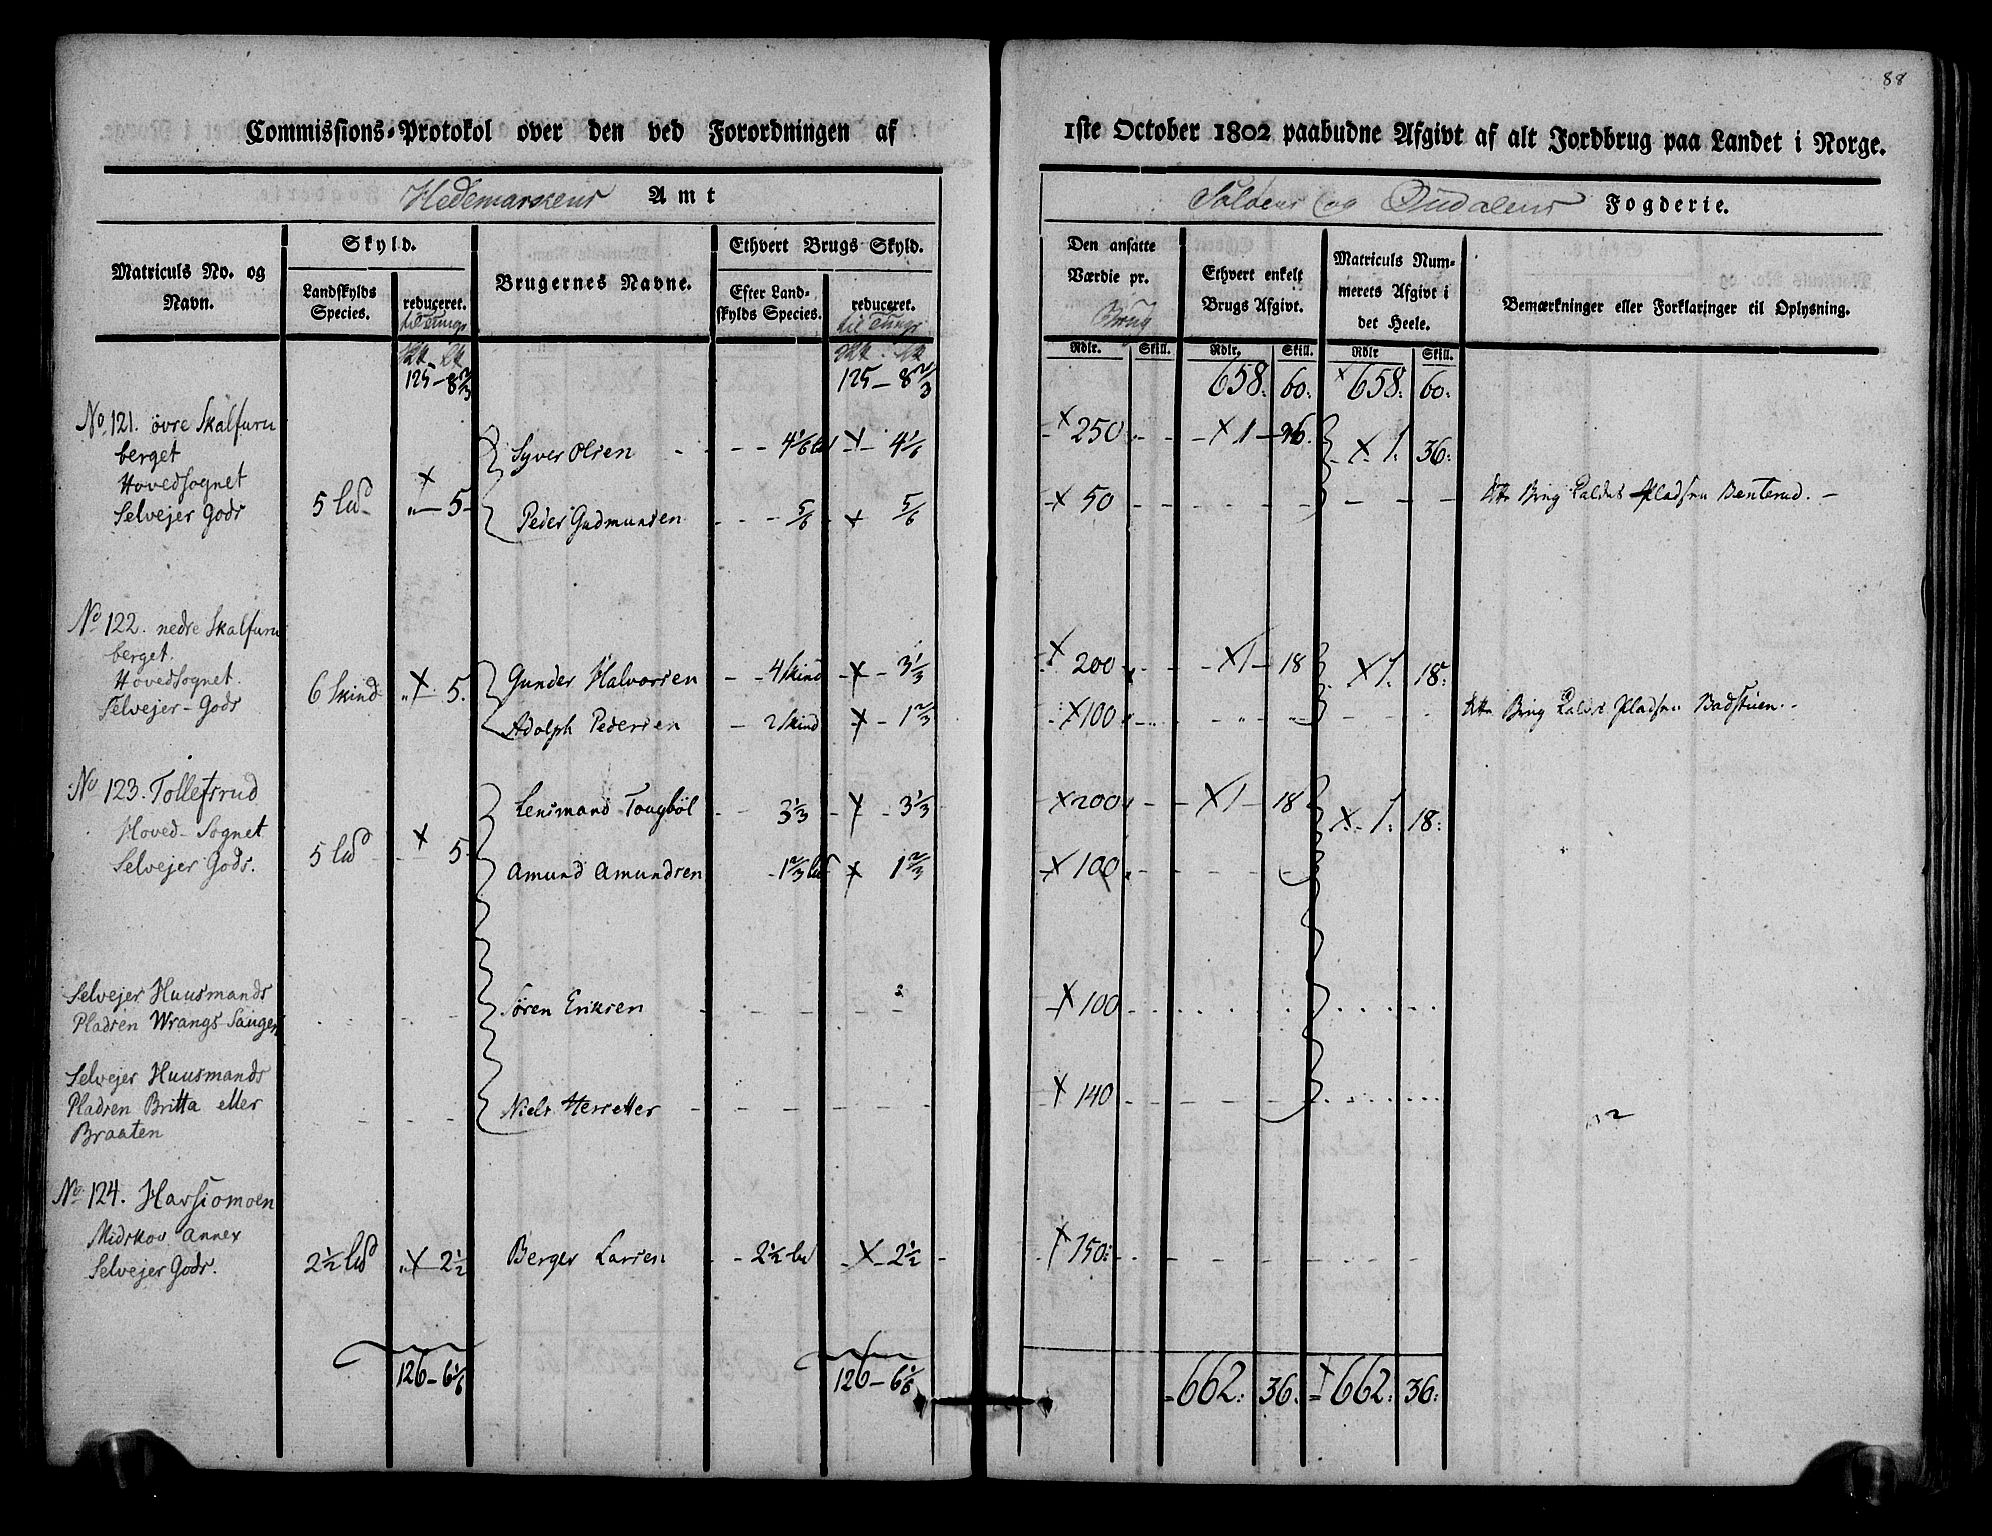 88
Commissions-Protokol over den ved Forordningen af
1ste October 1802 paabudne Afgivt af alt Jordbrug paa Landet i Norge.
Hedemarkens Amt
Soløens og Oudalens Fogderie.
Matriculs No. og Navn.
Skyld.
Landskylds Species.
reduceret.
til Tunge
Brugernes Navne.
Ethvert Brugs Skyld.
Efter Landskylds Species.
reduceret.
til Tunge
Den ansatte Værdie pr. Brug
Ethvert enkelt Brugs Afgivt.
Matriculs Nummerets Afgivt i det Heele.
Bemærkninger eller Forklaringer til Oplysning.
Rdlr. Skill. Rdlr. Skill. Rdlr Skill.
125 - 8 2/3 125 - 8 2/3 658: 60: × 658: 60:
No 121. øvre Skalfuru
berget
Hovedsognet
Selvejer Gods
5 Ld × 5
Syver Olsen 4 1/6 × 4 1/6 × 250 × 1 36. × 1: 36:
Peder Gudmunsen 5/6 × 5/6 × 50 Brug Pladsen Benterud.
No 122. nedre Skalfuru
berget.
Hovedsognet.
Selvejer-Gods
6 Skind × 5.
Gunder Halvorsen 4 Skind × 3 1/3 × 200 × 1 18 × 1. 18:
Adolph Pedersen 2 Skind × 1 2/3 × 100 Brug Pladsen Badstuen.
No 123. Tollefsrud
Hoved-Sognet
Selvejer Gods.
5 Ld × 5.
Lensmand Tougbøl 3 1/3 × 3 1/3 × 200 × 1 18 × 1: 18:
Amund Amundsen 1 2/3 × 1 2/3 × 100
Selvejer Huusmands
Pladsen Wrangs-Sauger
Søren Eriksen × 100
Selvejer Huusmands
Pladsen Britta eller
Braaten
Niels × 140
No 124. Havsiomoen
Midskov Annex
Selvejer Gods.
2 1/2 Ld × 2 1/2 Berger Larsen 2 1/2 × 2 1/2 × 150:
126 - 6 1/6 126 - 6 1/6 662: 36. 662: 36: